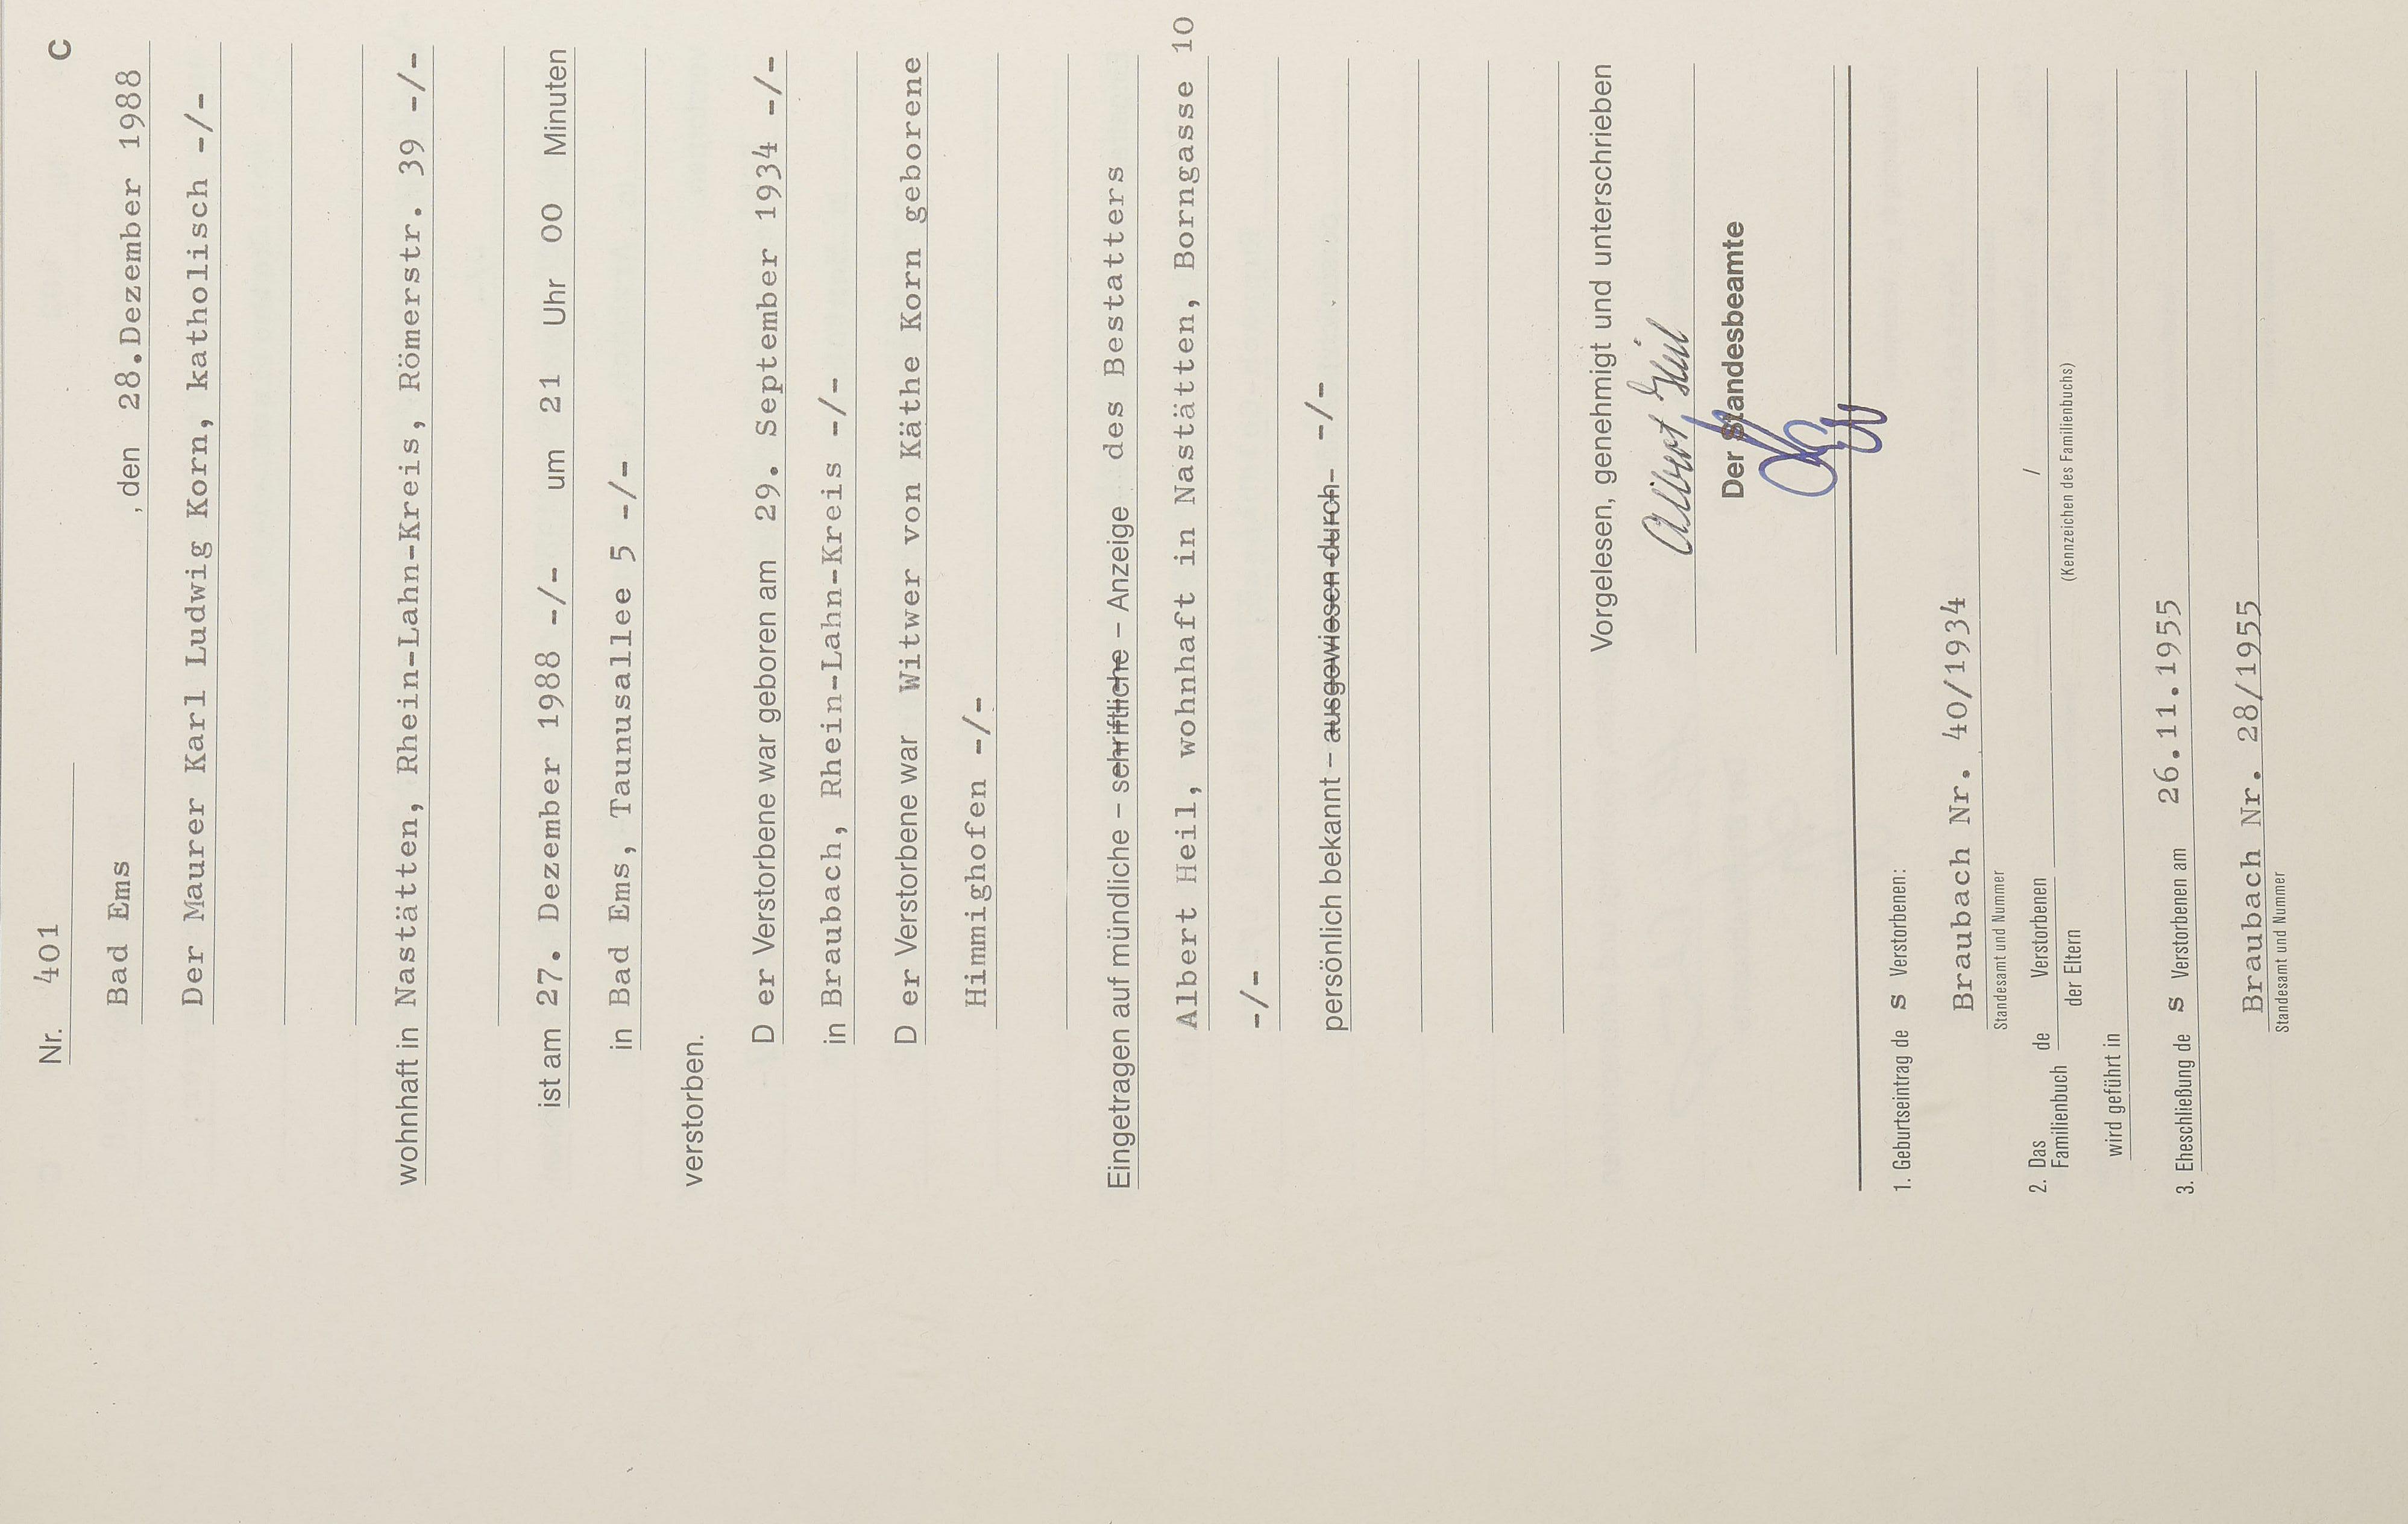 Nr. 401 C
Bad Ems , den 28.Dezember 1988
Der Maurer Karl Ludwig Korn, katholisch -/-
wohnhaft in Nastätten, Rhein-Lahn-Kreis, Römerstr. 39 -/-
ist am 27. Dezember 1988 -/- um 21 Uhr 00 Minuten
in Bad Ems, Taunusallee 5 -/-
verstorben.
D er Verstorbene war geboren am 29. September 1934 -/-
in Braubach, Rhein-Lahn-Kreis -/-
D er Verstorbene war Witwer von Käthe Korn geborene
Himmighofen -/-
Eingetragen auf mündliche – schriftliche – Anzeige des Bestatters
Albert Heil, wohnhaft in Nastätten, Borngasse 10
-/-
persönlich bekannt – ausgewiesen durch -/-
Vorgelesen, genehmigt und unterschrieben
Albert Heil
Der Standesbeamte
1. Geburtseintrag de s Verstorbenen:
Braubach Nr. 40/1934
Standesamt und Nummer
2. Das Familienbuch de Verstorbenen /
der Eltern (Kennzeichen des Familienbuchs)
wird geführt in
3. Eheschließung de s Verstorbenen am 26.11.1955
Braubach Nr. 28/1955
Standesamt und Nummer